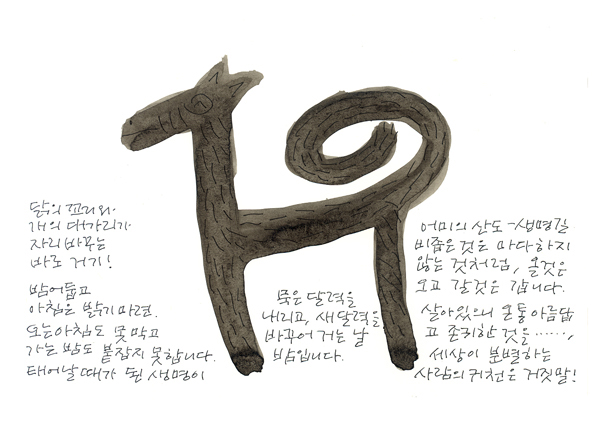 닭의 꼬리와
개의 대가리가
자리바꾸는
바로 거기!
밤어둡고
아침은 밝기마련.
오는아침도 못막고
가는밤도 붙잡지 못합니다.
태어날때가 된 생명이
묵은달력을
내리고, 새달력을
바꾸어 거는 날
밤입니다.
어미의 산도-생명길
비좁은것은 마다하지
않는 것처럼, 올것은
오고 갈것은 갑니다.
살아있으니 온통아름답
고 존귀한 것을……,
세상이 분별하는
사람의귀천은 거짓말!